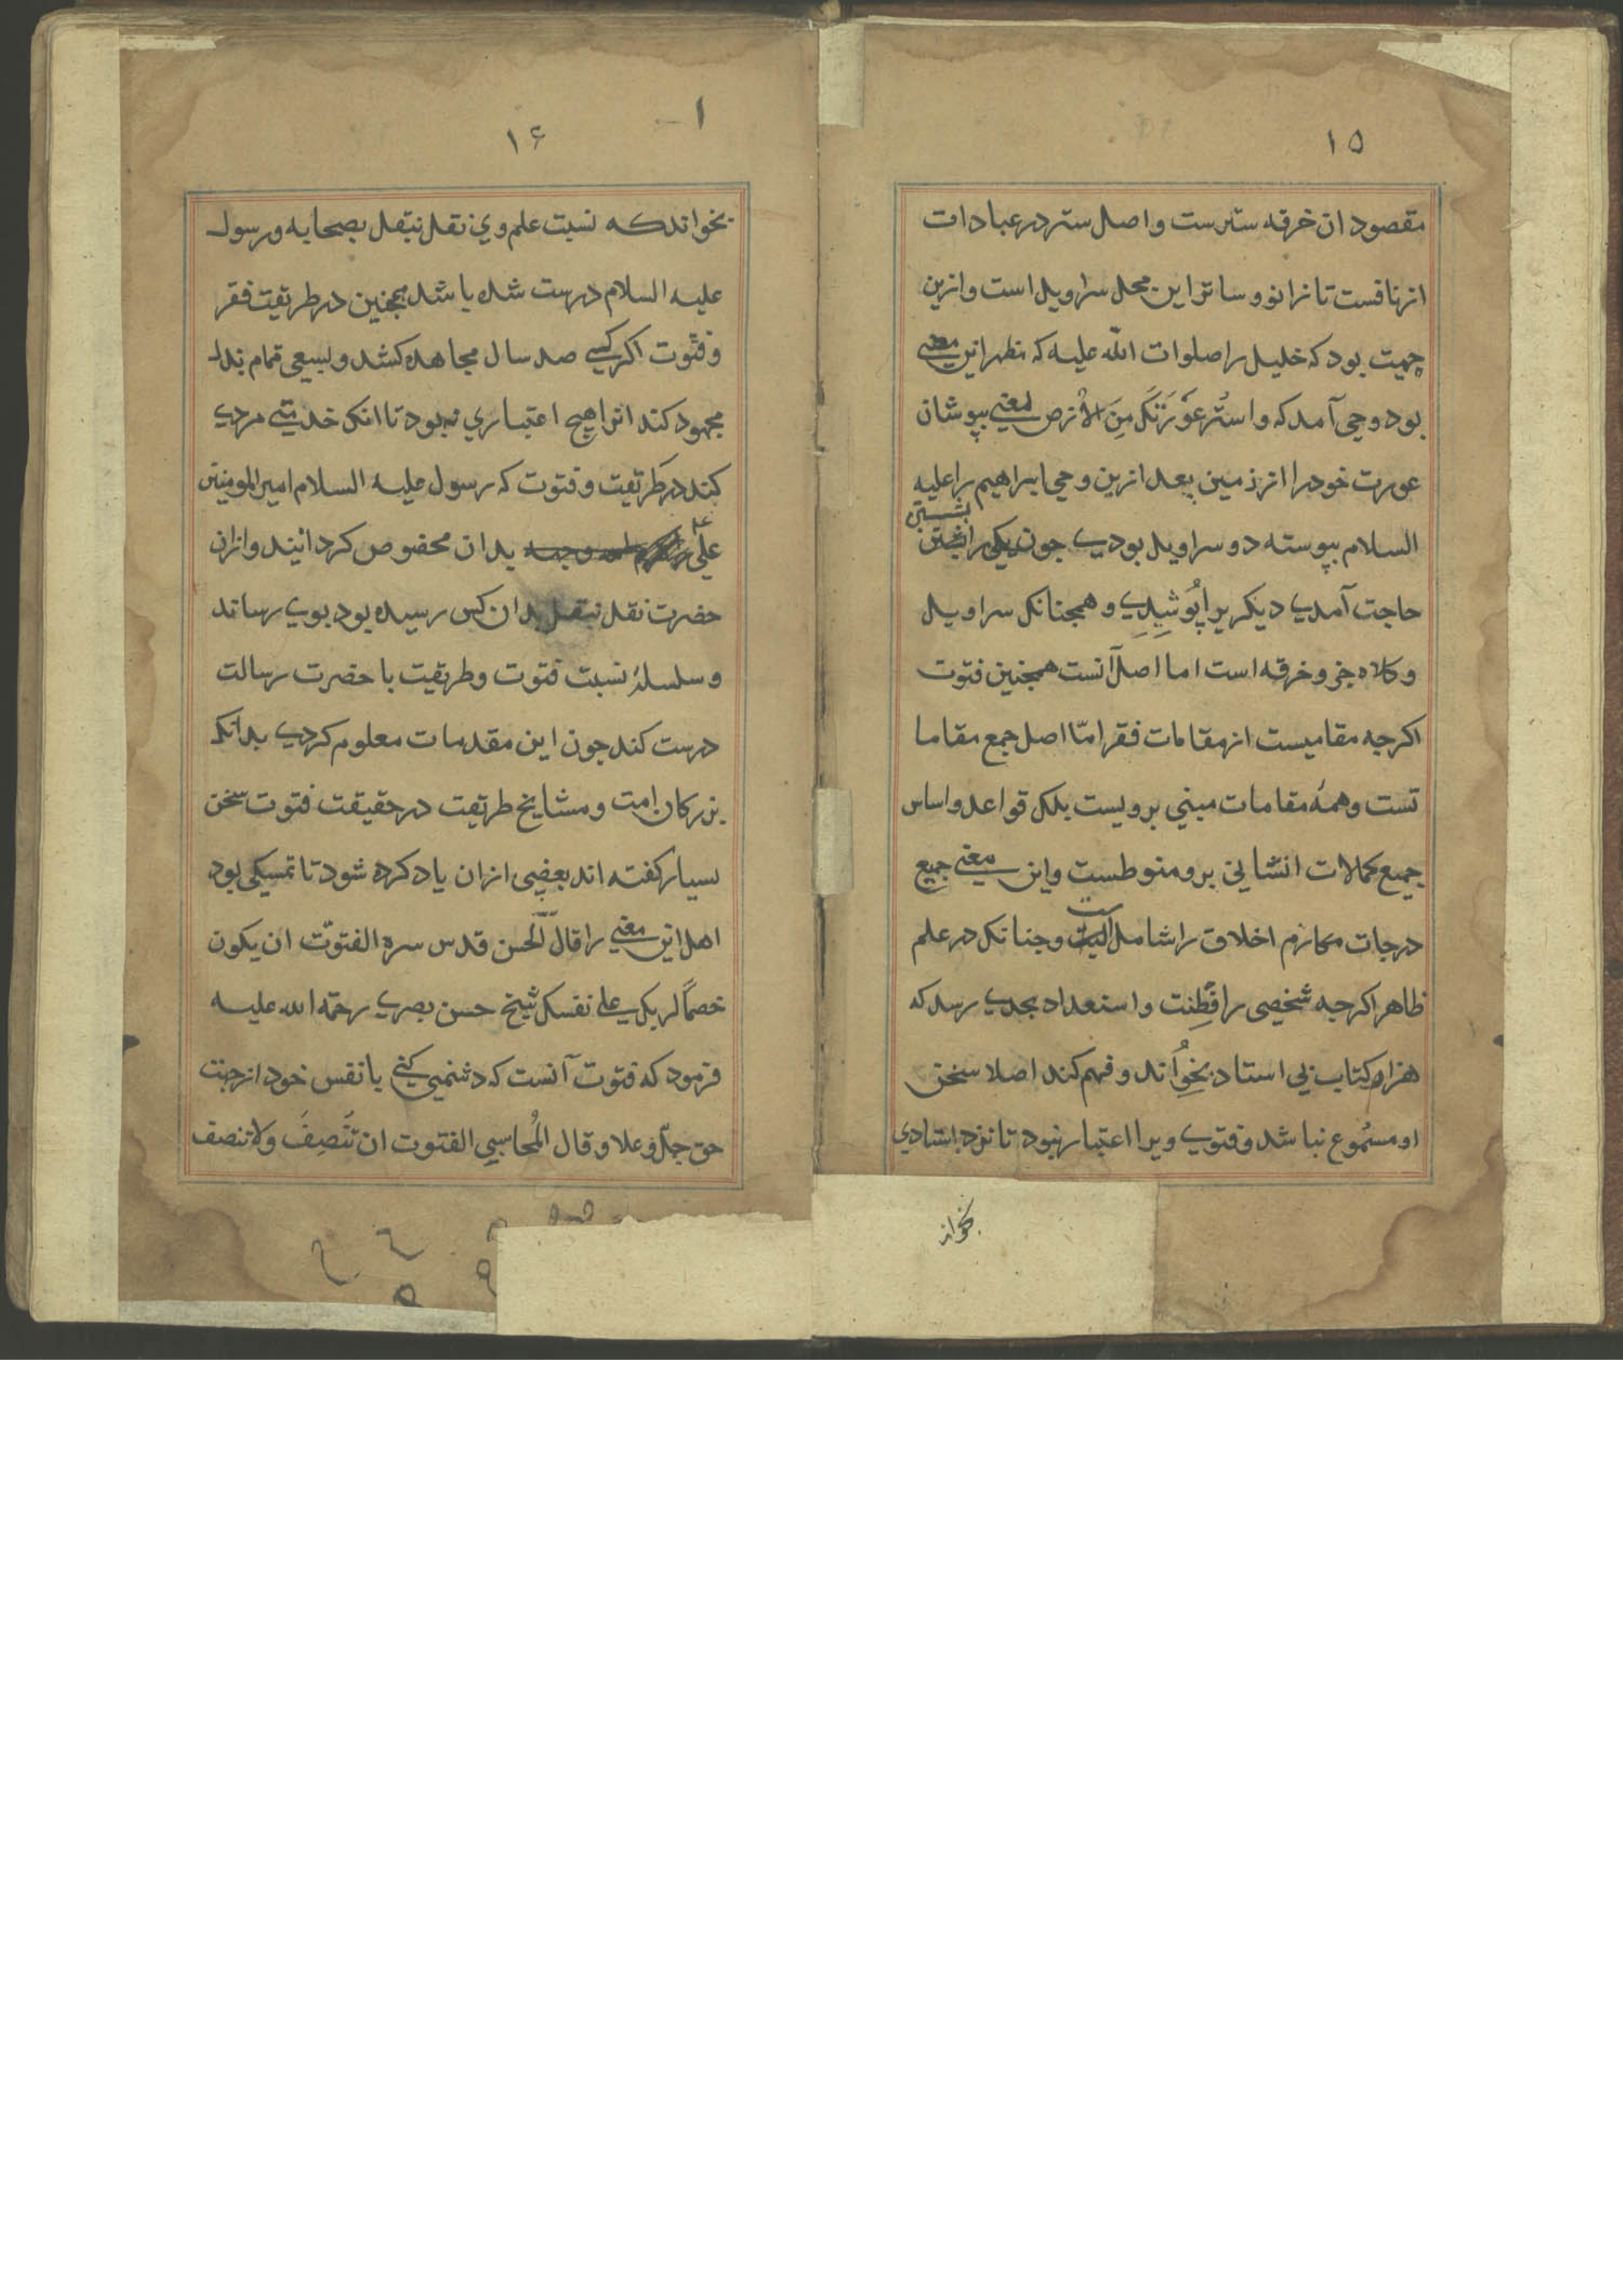 ۱۵
مقصود ان خرقه سترست واصل ستر در عبادات
از نافست تا زانو و ساتر این محل سراویل است و ازین
جهت بود که خلیل را صلوات الله علیه که مظهر این معنی
بود وحی آمد که واستر عَوْرَتَکَ مِنَ الاَرض یعنی بپوشان
عورت خود را از زمین بعد ازین وحی ابراهیم را علیه
السلام پیوسته دو سراویل بودی جون یکی را بشستن
حاجت آمدی دیکریرا پُوشیدی و همجنانک سراویل
و کلاه جزو خرقه است اما اصل آنست همجنین فتوت
اکرجه مقامیست از مقامات فقر امّا اصل جمع مقاما
تست و همهٔ مقامات مبنی برویست بلک قواعد و اساس
جمیع کمالات انسانی برو منوطست و این معنی جمیع
درجات مکارم اخلاق را شامل است و جنانک در علم
ظاهر اکرجه شخصی را فِطِنت و استعداد بجدی رسد که
هزار کتاب بی استاد بخواند و فهم کند اصلا سخن
او مسمُوع نباشد و فتوی ویرا اعتبار نبود تا نزد استادی
بخواند
۱۶
بخواند که نسبت علم وی نقل بنقل بصحابه و رسول
علیه السلام درست شده باشد همجنین در طریقت فقر
و فتّوت اکر کسی صد سال مجاهده کشد و بسعی تمام بذل
مجهود کند انرا هیچ اعتباری نه بود تا انک خدمتی مردی
کند در طریقت و فتوت که رسول علیه السلام امیر المومنین
علی بدان مخصوص کردانیند و ازان
حضرت نقل بنقل بدان کس رسیده بود بوی رساند
و سلسلهٔ نسبت فتوت و طریقت با حضرت رسالت
درست کند جون این مقدمات معلوم کردی بدانک
بزرکان امت و مشایخ طریقت در حقیقت فتوت سخن
بسیار کفته اند بعضی ازان یاد کرده شود تا تمسکی بود
اهل این معنی را قال الحسن قدس سره الفتوّت ان یکون
خصماً لربک علی نفسک شیخ حسن بصری رحمه الله علیه
فرمود که فتوت آنست که دشمنی کنی با نفس خود از جهت
حق جلّ و علا و قال المُحاسبی الفتوت ان تَنصِفَ و لا تنصف